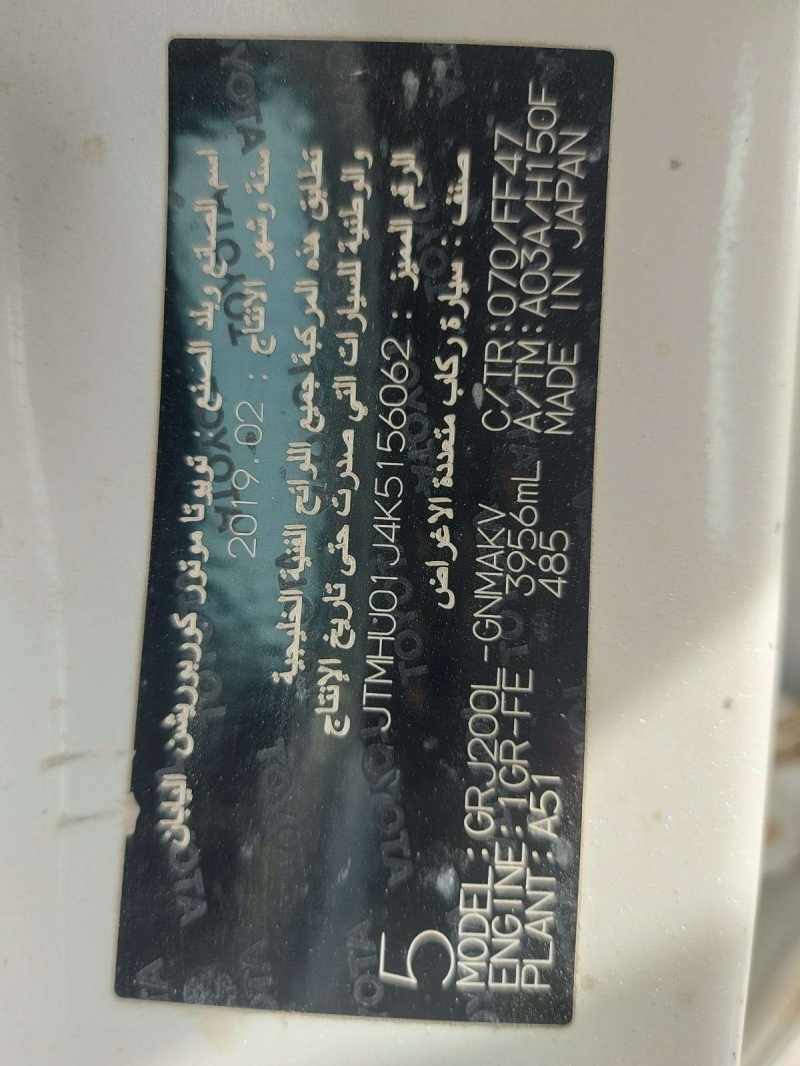 اسم الصانع وبلد الصنع تويوتا موتور كوربوريشن اليابان
سنة وشهر الإنتاج : 2019.02
تطابق هذه المركبة جميع اللوائح الفنية الخليجية
والوطنية للسيارات التي صدرت حتى تاريخ الإنتاج
الرقم المميز : JTMHU01J4K5156062
صنف : سيارة ركاب متعددة الاغراض
5
MODEL : GRJ200L-GNMAKV C/TR:070/FF47
ENGINE: 1GR-FE 3956mL A/TM:A03A/H150F
PLANT: A51 485 MADE IN JAPAN